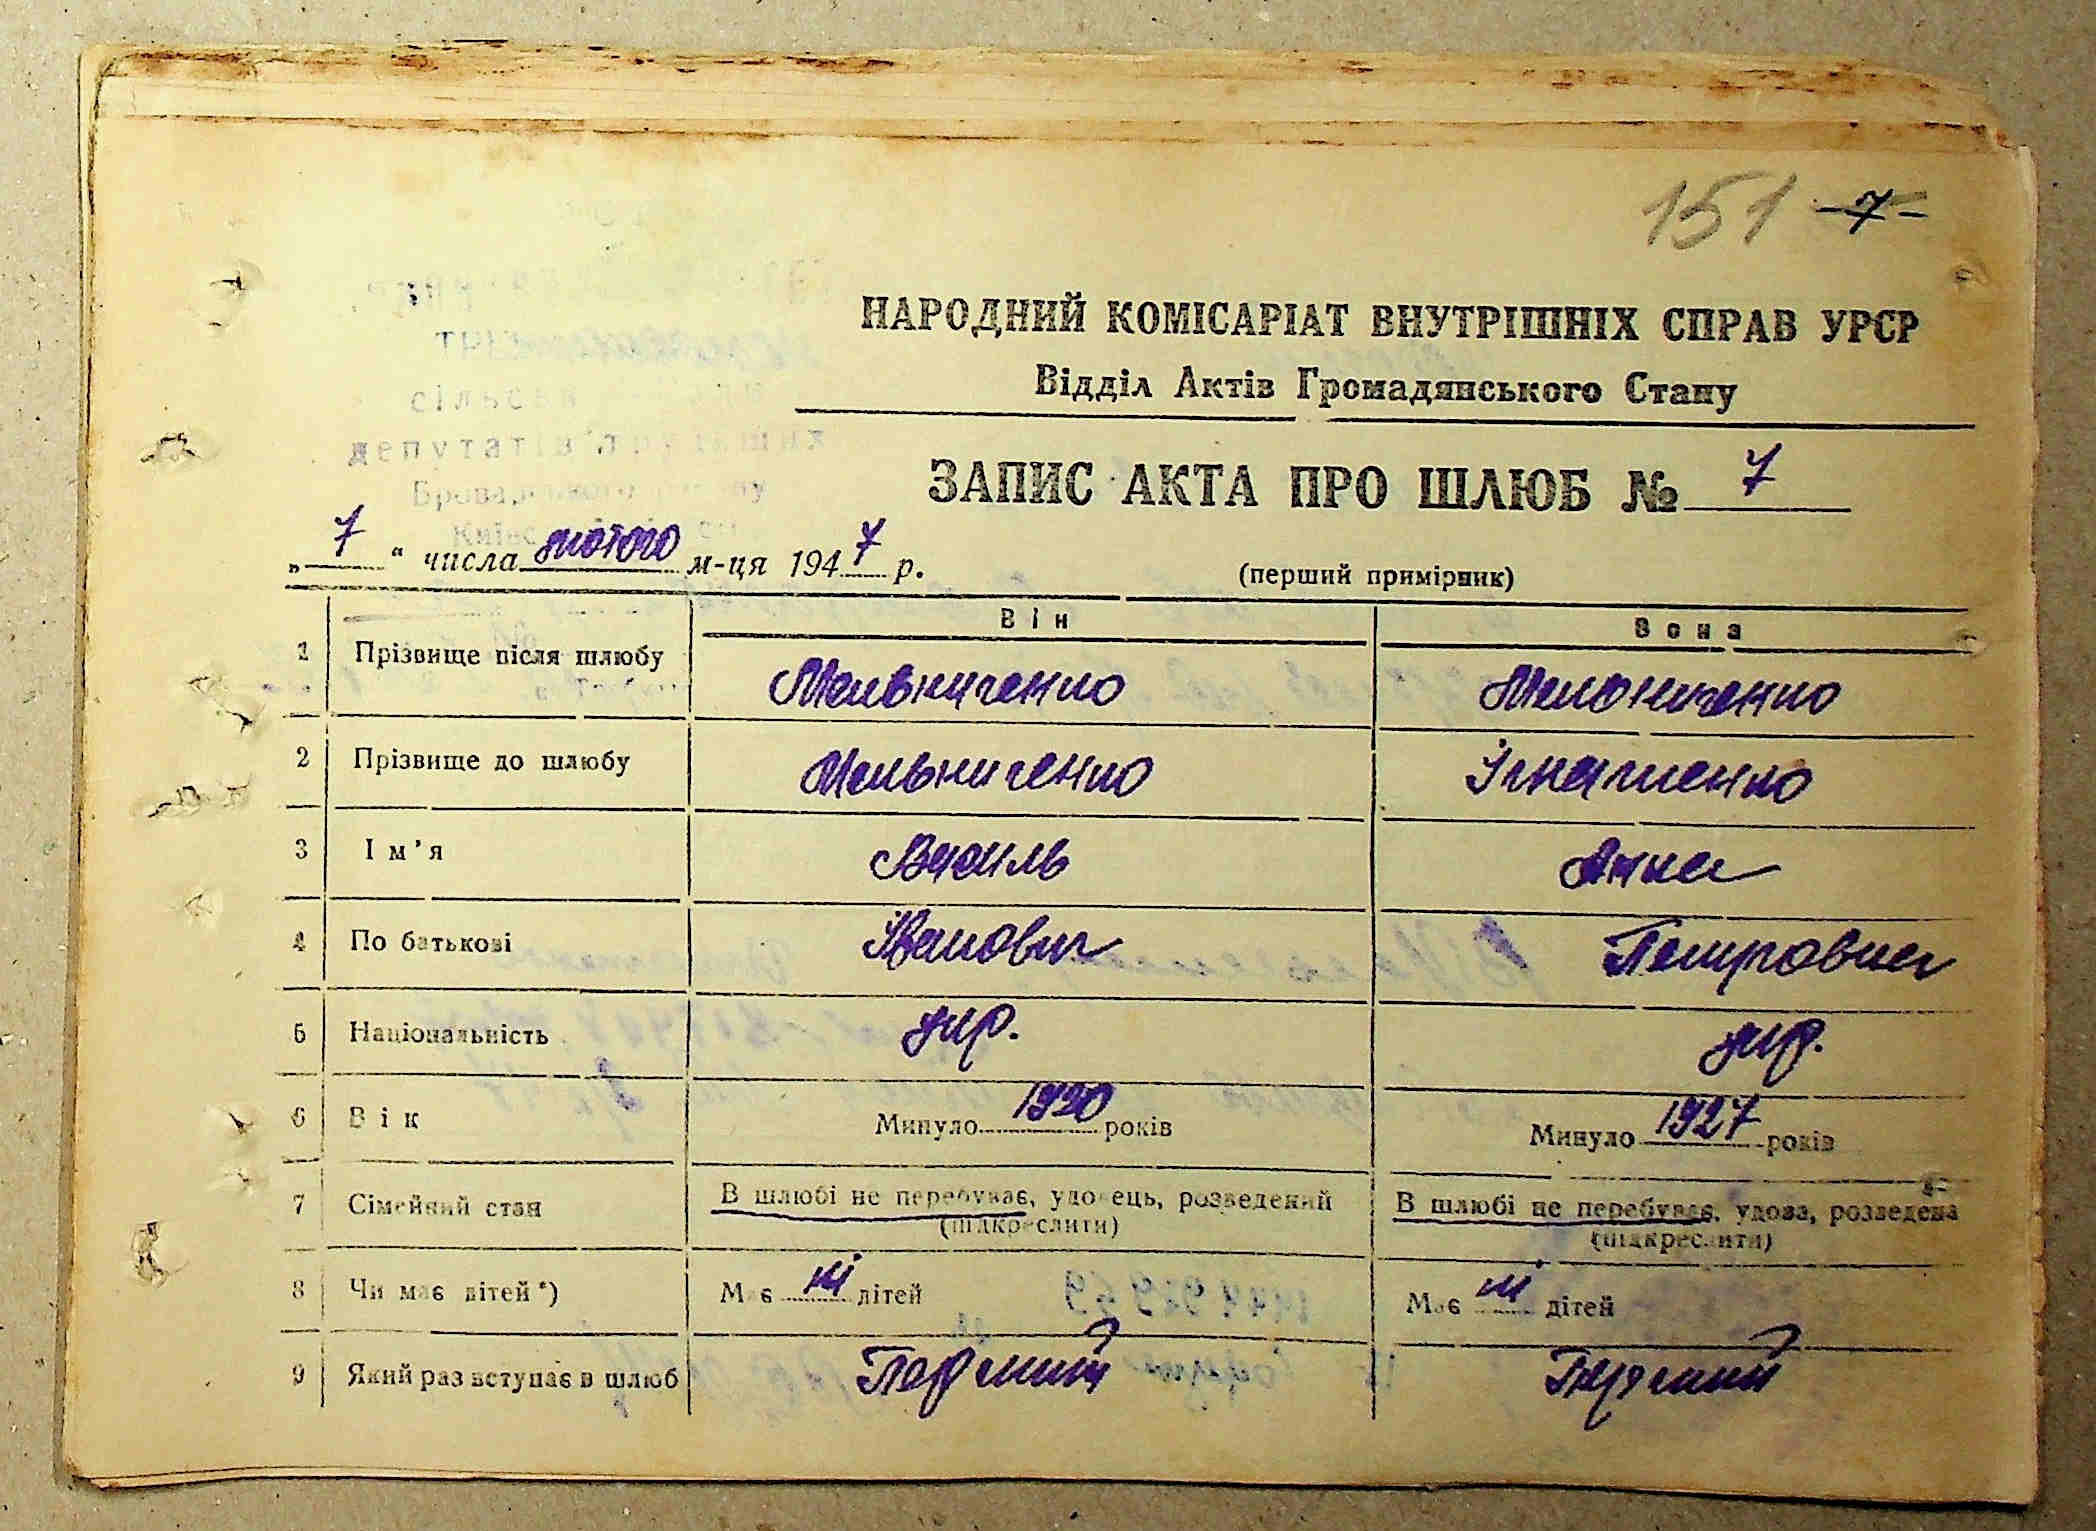 151 -7-
НАРОДНИЙ КОМІСАРІАТ ВНУТРІШНІХ СПРАВ УРСР
Відділ Актів Громадянського Стану
ЗАПИС АКТА ПРО ШЛЮБ № 7
„7“ числа лютого м-ця 1947 р.
(перший примірник)
Він Вона
1 Прізвище після шлюбу Мельниченко Мельниченко
2 Прізвище до шлюбу Мельниченко Ігнатенко
3 Ім'я Василь Анна
4 По батькові Іванович Петровна
5 Національність укр. укр.
6 Вік Минуло 1920 років Минуло 1927 років
7 Сімейний стан В шлюбі не перебуває, удовець, розведений В шлюбі не перебуває, удова, розведена
(підкреслити) (підкреслити)
8 Чи має дітей *) Має ні дітей Має ні дітей
9 Який раз вступає в шлюб Перший Перший